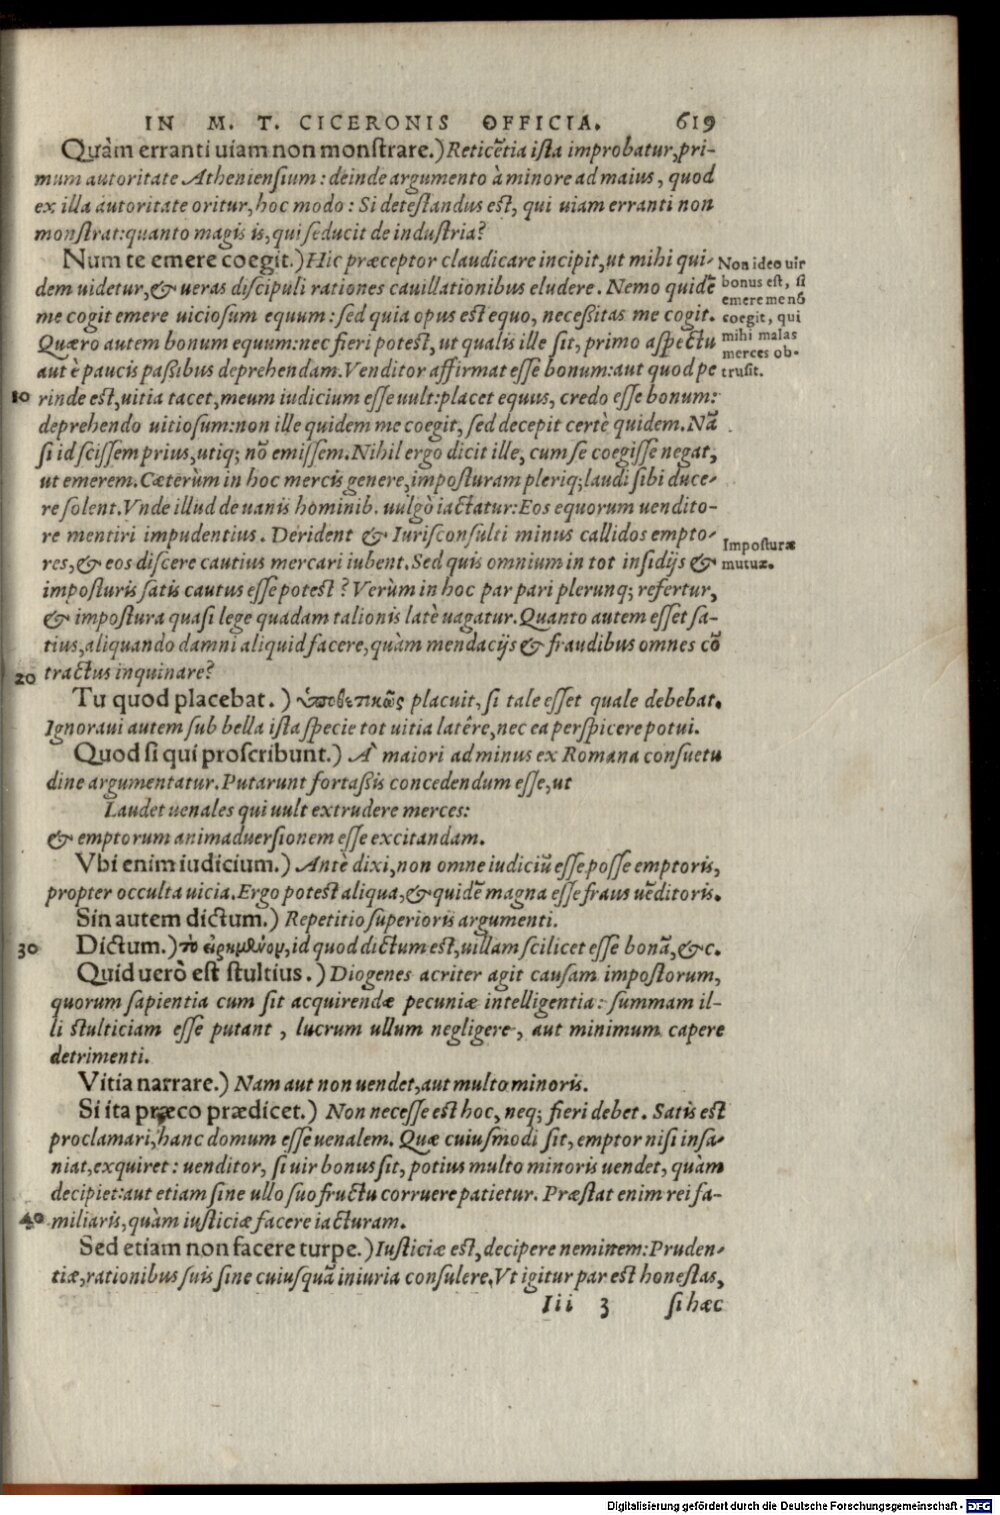 IN M. T. CICERONIS OFFICIA. 619
Quàm erranti uiam non monstrare.) Reticẽtia ista improbatur, pri-
mum autoritate Atheniensium: deinde argumento à minore ad maius, quod
ex illa autoritate oritur, hoc modo: Si detestandus est, qui uiam erranti non
monstrat: quanto magis is, qui seducit de industria?
Num te emere coegit.) Hic præceptor claudicare incipit, ut mihi qui-
dem uidetur, & ueras discipuli rationes cauillationibus eludere. Nemo quidẽ
me cogit emere uiciosum equum: sed quia opus est equo, necessitas me cogit.
Quæro autem bonum equum: nec fieri potest, ut qualis ille sit, primo aspectu
aut è paucis passibus deprehendam. Venditor affirmat esse bonum: aut quod pe
10 rinde est, uitia tacet, meum iudicium esse uult: placet equus, credo esse bonum:
deprehendo uitiosum: non ille quidem me coegit, sed decepit certè quidem. Nã
si id scissem prius, utiq; nõ emissem. Nihil ergo dicit ille, cum se coegisse negat,
ut emerem. Cæterùm in hoc mercis genere, imposturam pleriq; laudi sibi duce-
re solent. Vnde illud de uanis hominib. uulgò iactatur: Eos equorum uendito-
re mentiri impudentius. Derident & Iurisconsulti minus callidos empto-
res, & eos discere cautius mercari iubent. Sed quis omnium in tot insidijs &
imposturis satis cautus esse potest? Verùm in hoc par pari plerunq; refertur,
& impostura quasi lege quadam talionis latè uagatur. Quanto autem esset sa-
tius, aliquando damni aliquid facere, quàm mendacijs & fraudibus omnes cõ
20 tractus inquinare?
Non ideo uir
bonus est, si
emere me nõ
coegit, qui
mihi malas
merces ob-
trusit.
Imposturæ
mutuæ.
Tu quod placebat.) ὑποθετικῶς placuit, si tale esset quale debebat.
Ignoraui autem sub bella ista specie tot uitia latêre, nec ea perspicere potui.
Quod si qui proscribunt.) A` maiori ad minus ex Romana consuetu
dine argumentatur. Putarunt fortassis concedendum esse, ut
Laudet uenales qui uult extrudere merces:
& emptorum animaduersionem esse excitandam.
Vbi enim iudicium.) Antè dixi, non omne iudiciũ esse posse emptoris,
propter occulta uicia. Ergo potest aliqua, & quidẽ magna esse fraus uẽditoris.
Sin autem dictum.) Repetitio superioris argumenti.
30 Dictum.) τὸ εἰρημένον, id quod dictum est, uillam scilicet esse bonã, &c.
Quid uerò est stultius.) Diogenes acriter agit causam impostorum,
quorum sapientia cum sit acquirendæ pecuniæ intelligentia: summam il-
li stulticiam esse putant, lucrum ullum negligere, aut minimum capere
detrimenti.
Vitia narrare.) Nam aut non uendet, aut multo minoris.
Si ita præco prædicet.) Non necesse est hoc, neq; fieri debet. Satis est
proclamari, hanc domum esse uenalem. Quæ cuiusmodi sit, emptor nisi insa-
niat, exquiret: uenditor, si uir bonus sit, potius multo minoris uendet, quàm
decipiet: aut etiam sine ullo suo fructu corruere patietur. Præstat enim rei fa-
40 miliaris, quàm iusticiæ facere iacturam.
Sed etiam non facere turpe.) Iusticiæ est, decipere neminem: Pruden-
tiæ, rationibus suis sine cuiusquã iniuria consulere. Vt igitur par est honestas,
Iii 3 si hæc
Digitalisierung gefördert durch die Deutsche Forschungsgemeinschaft - DFG